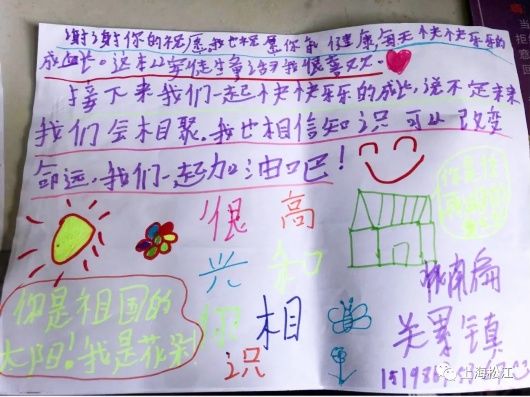 谢谢你的祝愿,我也祝愿你们健康,每天快快乐乐的
成长。
接下来我们一起快快乐乐的成长,说不定未来
我们会相聚。我也相信知识可以改变
命运,我们一起加油吧!
很高
兴和
你相
识
你是祖国的
太阳!我是花朵
关累镇
上海松江